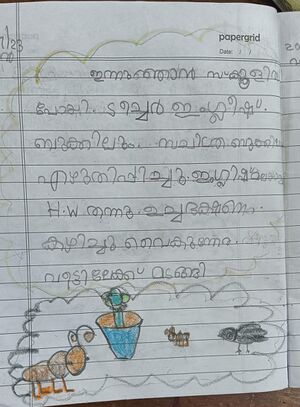 papergrid
Date: / /
ഇന്നുഞാൻ സ്കൂളിൽ
പോക്കി. ടീച്ചർ ഇംഗ്ലീഷ്.
ബുക്കിലും. സചിത്ര ബുക്കിലും
എഴുതിപ്പിച്ചു. ഇംഗ്ലിഷ്
H.W തന്നു. ഉച്ചഭക്ഷണം
കഴിച്ചു വൈകുന്നേരം
വീട്ടിലേക്ക് മടങ്ങി